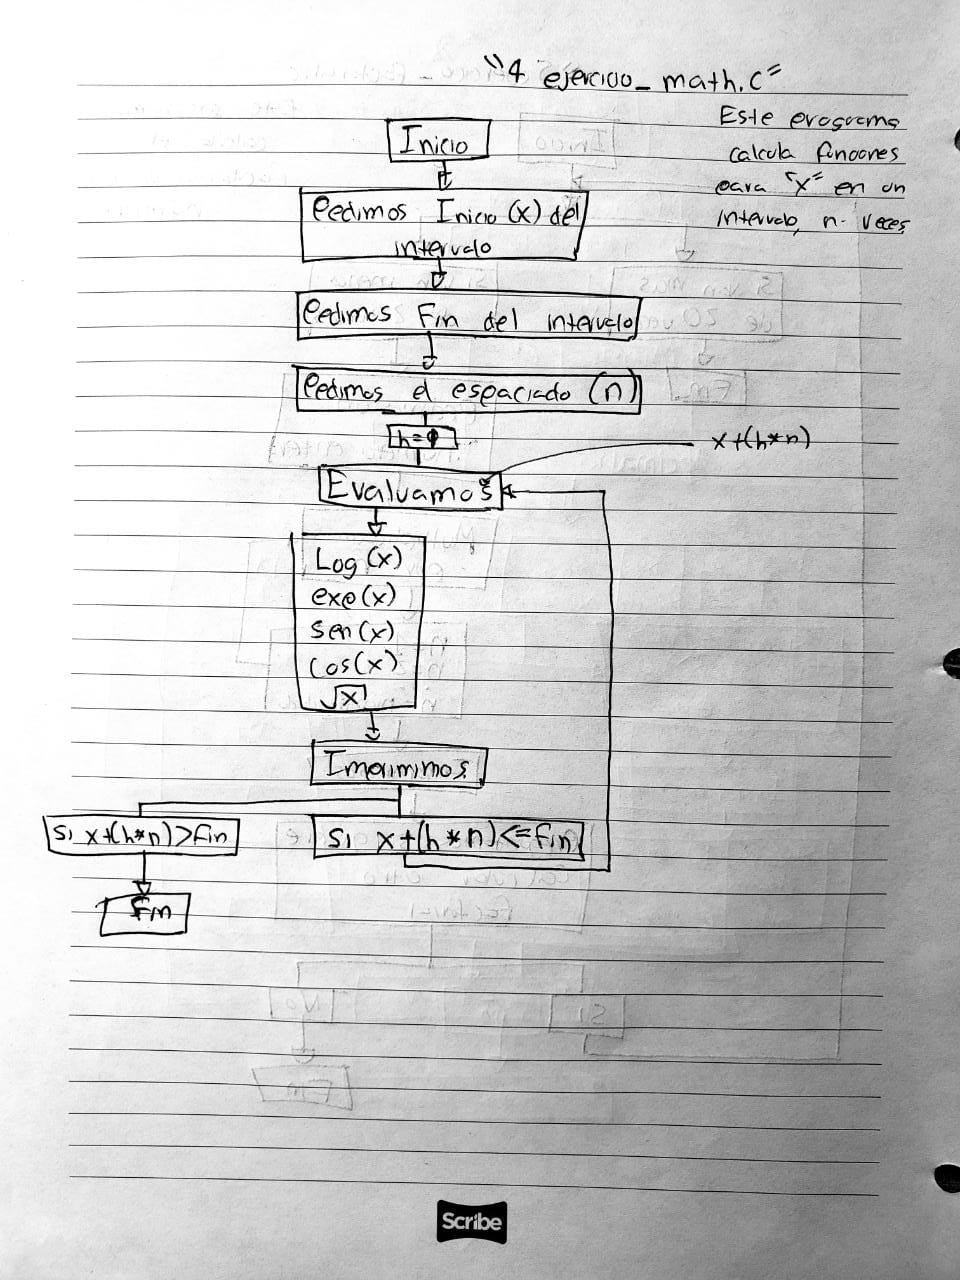 "4 ejercicio_math.c"
Este programa
calcula funciones
para "x" en un
intervalo, n- veces
Inicio
Pedimos Inicio (x) del
intervalo
Pedimos Fin del intervalo
Pedimos el espaciado (n)
x+(h*n)
Evaluamos
Log (x)
exp(x)
Sen(x)
Cos(x)
√x
Imprimimos
Si x+(h*n)>fin
Si x+(h*n)<=fin
Fin
Scribe